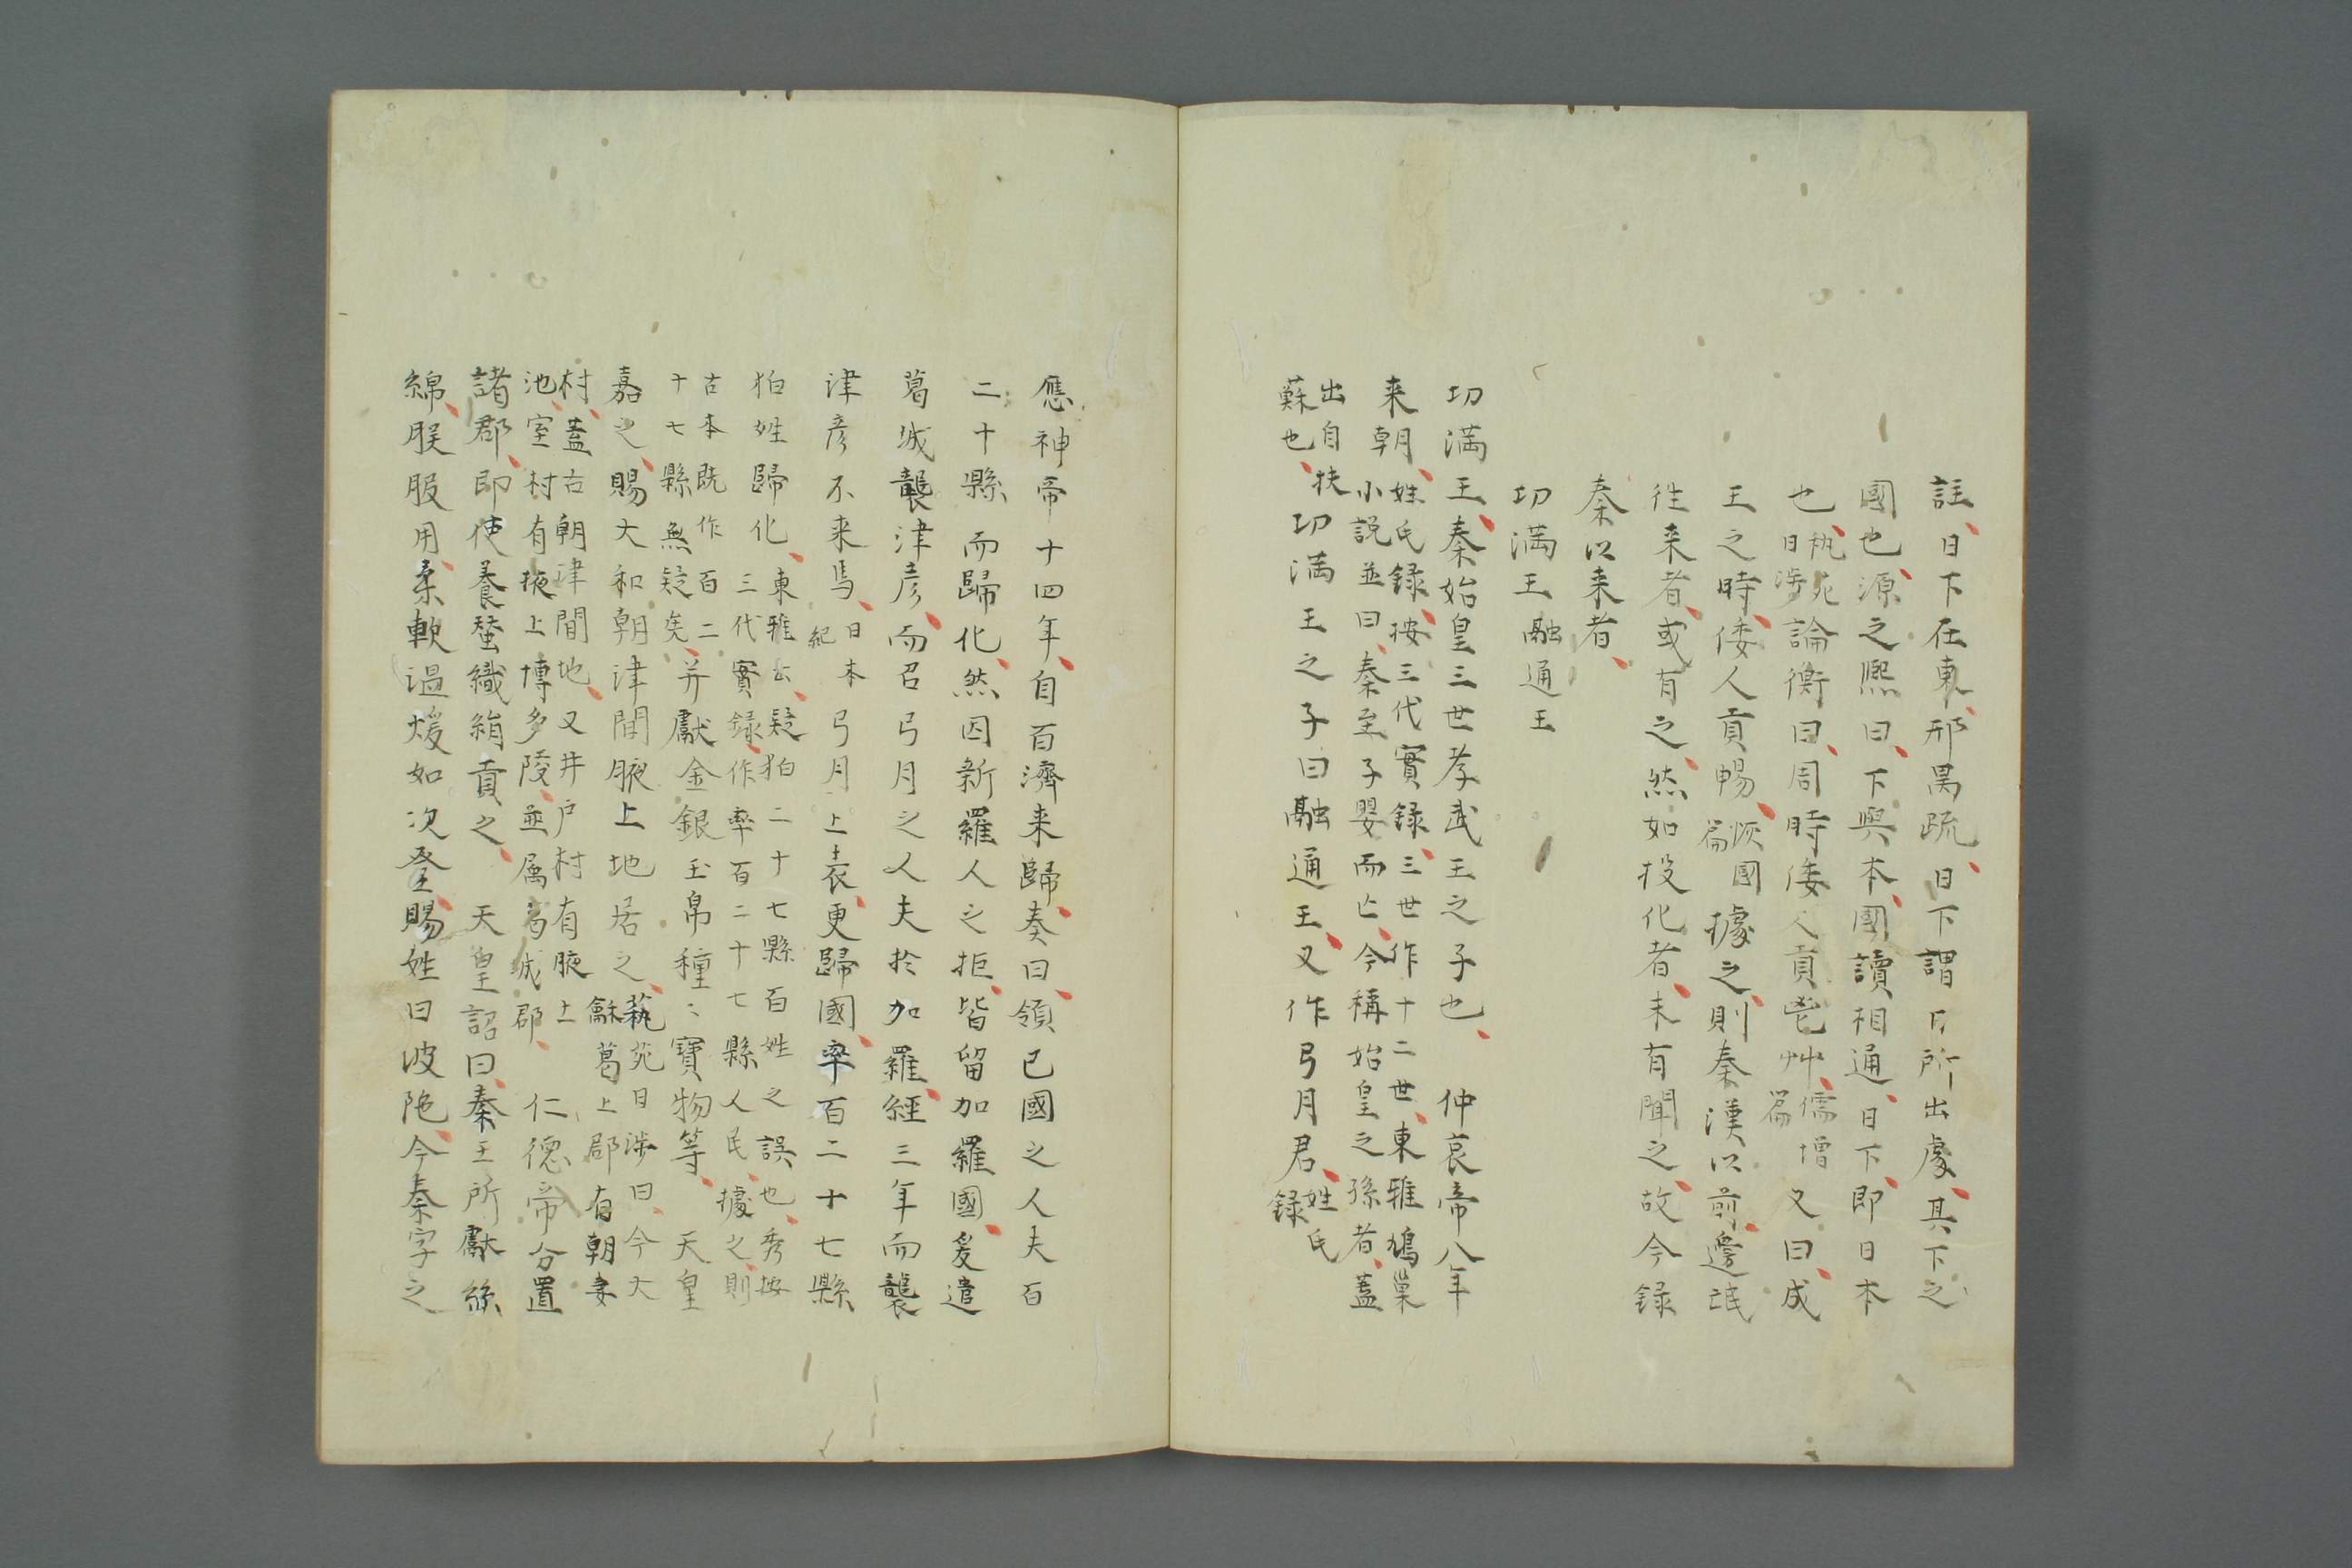 註日下在東邢昺疏日下謂日所出處其下之
國也源之熈曰下與本國讀相通日下即日本
也秇苑日渉論衡曰周時倭人貢鬯艸儒増篇又曰成
王之時倭人貢暢恢國篇據之則秦漢以前邊氓
徃来者或有之然如投化者未有聞之故今録
秦以来者
切満王融通王
切満王秦始皇三世孝武王之子也　仲哀帝八年
来朝姓氏録按三代實録三世作十二世東雅鳩巣
小説並曰秦至子嬰而亡今稱始皇之孫者蓋
出自扶蘇也切満王之子曰融通王又作弓月君姓氏録
應神帝十四年自百濟来歸奏曰領己國之人夫百
二十縣而歸化然因新羅人之拒皆留加羅國爰遣
葛城襲津彦而召弓月之人夫於加羅經三年而襲
津彦不来焉日本紀弓月上表更歸國率百二十七縣
狛姓歸化東雅云疑狛二十七縣百姓之誤也秀按
三代實録作率百二十七縣人民據之則
古本既作百二
十七縣無疑矣并獻金銀玉帛種〻寶物等　天皇
嘉之賜大和朝津間腋上地居之秇苑日渉曰今大
龢葛上郡有朝妻
村蓋古朝津間地又井戸村有腋上
池室村有掖上博多陵並属葛城郡　仁德帝分置
諸郡即使養蚕織絹貢之　天皇詔曰秦王所獻絲
綿朕服用柔軟温煖如次登賜姓曰波陁今秦字之